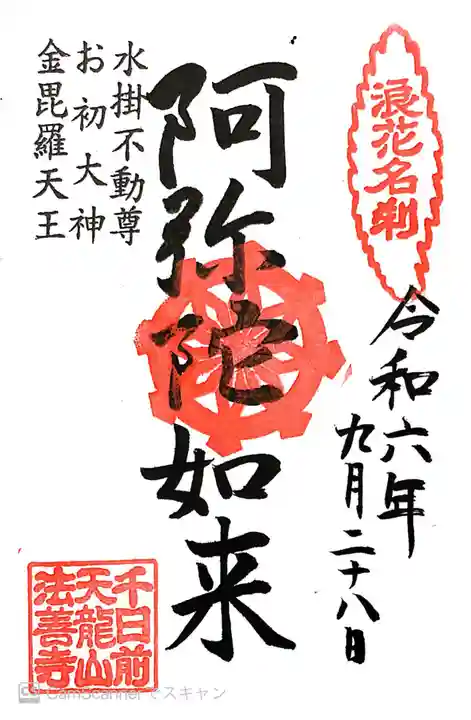 浪花名刹
令和六年
九月二十八日
阿弥陀如来
水掛不動尊
お初大神
金毘羅天王
千日前
天龍山
法善寺
CamScannerでスキャン